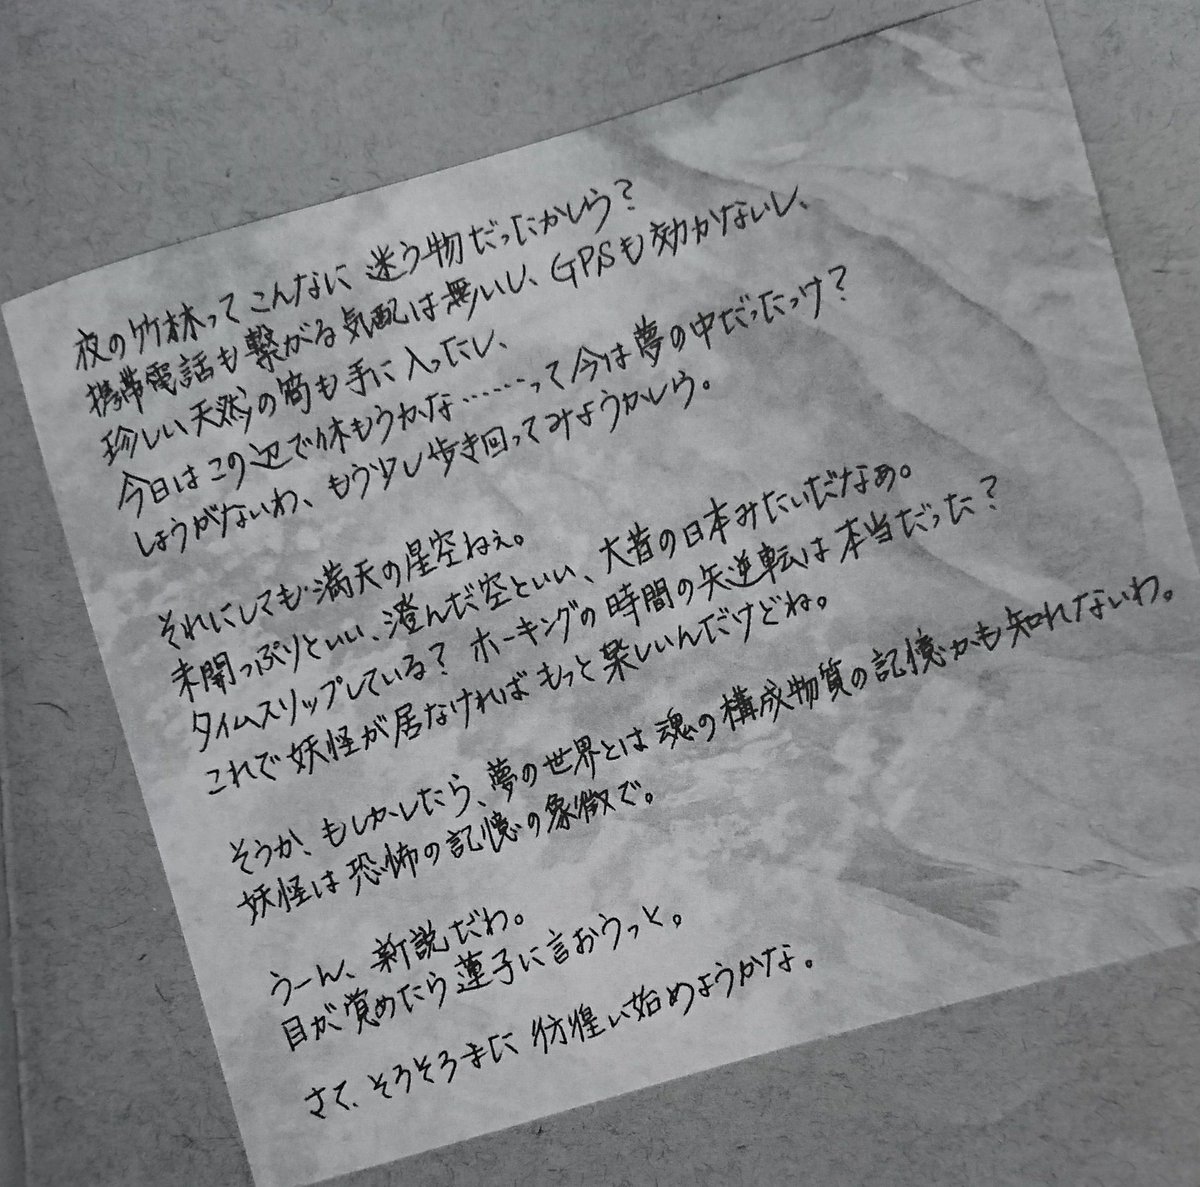 夜の竹林ってこんなに迷う物だったかしら？
携帯電話も繋がる気配は無いし、GPSも効かないし、
珍しい天然の筍も手に入ったし、
今日はこの辺で休もうかな……って今は夢の中だったっけ？
しょうがないわ、もう少し歩き回ってみようかしら。
それにしても満天の星空ねぇ。
未開っぷりといい、澄んだ空といい、大昔の日本みたいだなぁ。
タイムスリップしている？ ホーキングの時間の矢逆転は本当だった？
これで妖怪が居なければもっと楽しいんだけどね。
そうか、もしかしたら、夢の世界とは魂の構成物質の記憶かも知れないわ。
妖怪は恐怖の記憶の象徴で。
うーん、新説だわ。
目が覚めたら蓮子に言おうっと。
さて、そろそろまた彷徨い始めようかな。